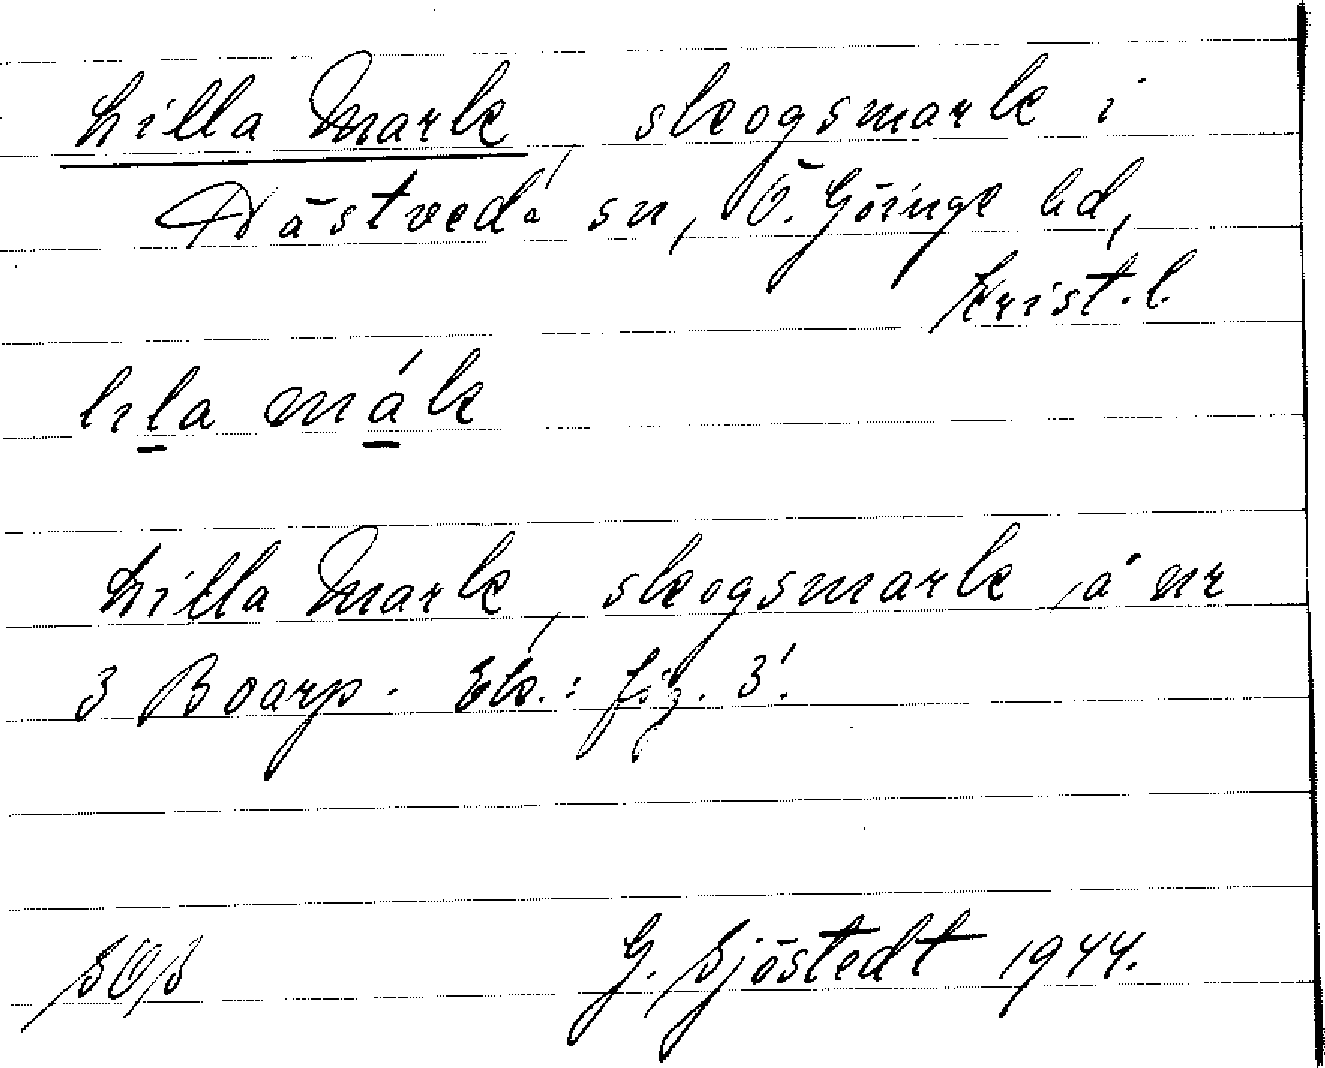 Lilla Mark, skogsmark i
Västveda sn, Ö. Göinge hd,
Krist. l.
lila mák
Lilla Mark, skogsmark å nr
3 Boarp. Ek.: fig. 3.
SOS G. Sjöstedt 1944.